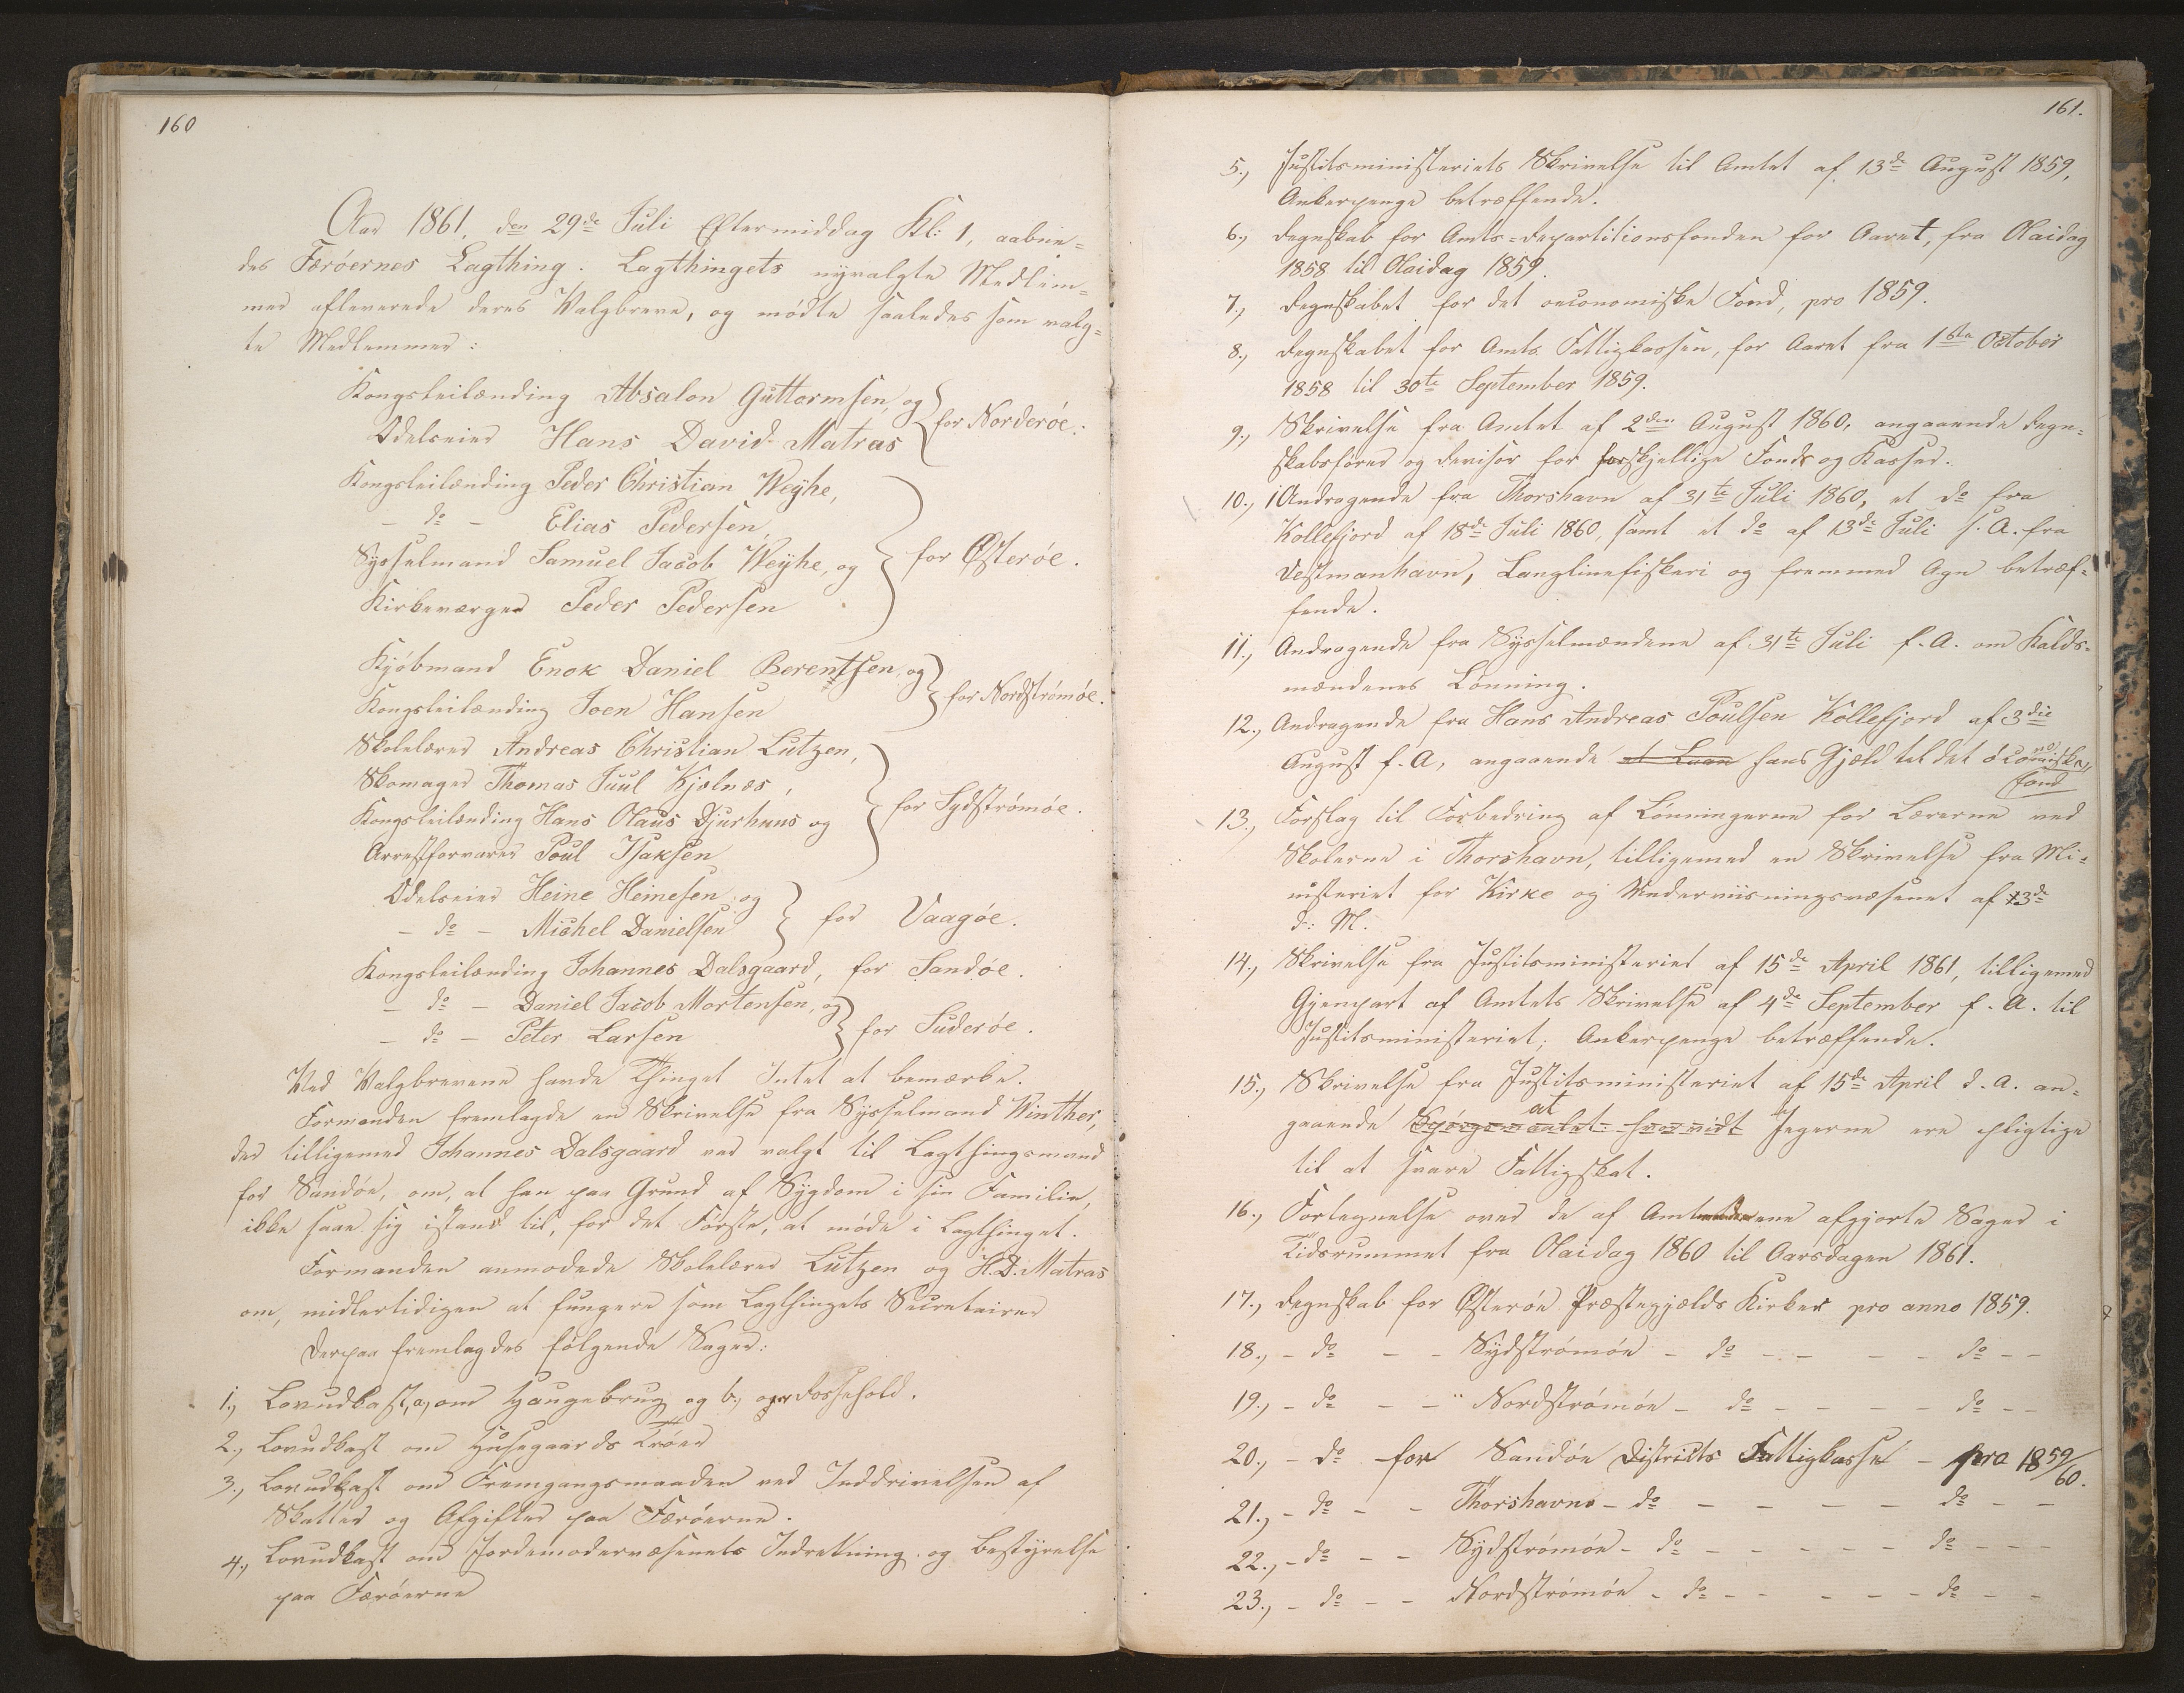 160
Aar 1861, den 29de Juli Eftermiddag Kl: 1, aabne=
des Færøernes Lagthing. Lagthingets nyvalgte Medlem=
mer afleverede deres Valgbreve, og mødte saaledes som valg=
te Medlemmer:
Kongsleilænding Absalon Guttormsen, og
Odelseier Hans David Matras
for Norderøe.
Kongsleilænding Peder Christian Weyhe,
- do - Elias Pedersen,
Sysselmand Samuel Jacob Weyhe, og
Kirkeværger Peder Pedersen
for Østerøe.
Kjøbmand Enok Daniel Berentsen, og
Kongsleilænding Joen Hansen
for Nordstrømøe.
Skolelærer Andreas Christian Lützen,
Skomager Thomas Juul Kjølnæs,
Kongsleilænding Hans Olaus Djurhuus og
Arrestforvarer Poul Isaksen
for Sydstrømøe.
Odelseier Heine Heinesen, og
- do - Michel Danielsen
for Vaagøe.
Kongsleilænding Johannes Dalsgaard, for Sandøe.
- do - Daniel Jacob Mortensen, og
- do - Peter Larsen
for Suderøe.
Ved Valgbrevene havde Thinget Intet at bemærke.
Formanden fremlagde en Skrivelse fra Sysselmand Winther,
der tilligemed Johannes Dalsgaard var valgt til Lagthingsmand
for Sandøe, om, at han paa Grund af Sygdom i sin Familie,
ikke saae sig istand til, for det Første, at møde i Lagthinget.
Formanden anmodede Skolelærer Lützen og H.D. Matras
om, midlertidigen at fungere som Lagthingets Secretairer
Derpaa fremlagdes følgende Sager:
1., Lovudkast, a, om Haugebrug og b,
2., Lovudkast om Husegaards Trøer
3., Lovudkast om Fremgangsmaaden ved Inddrivelsen af
Skatter og Afgifter paa Færøerne.
4., Lovudkast om Jordemodervæsenets Indretning og Bestyrelse
paa Færøerne
161.
5., Justitsministeriets Skrivelse til Amtet af 13de August 1859,
Ankerpenge betræffende.
6., Regnskab for Amts=Repartitionsfonden for Aaret, fra Olaidag
1858 til Olaidag 1859.
7., Regnskabet for det oeconomiske Fond, pro 1859.
8., Regnskabet for Amts Fattigkassen, for Aaret fra 1ste October
1858 til 30te September 1859.
9., Skrivelse fra Amtet af 2den August 1860, angaaende Regn=
skabsfører og Revisor for forskjellige Fonds og Kasser.
10., 1 Andragende fra Thorshavn af 31te Juli 1860, et do fra
Kollefjord af 18de Juli 1860, samt et do af 13de Juli s. A. fra
Vestmanhavn, Langlinefiskeri og fremmed Agn betræf=
fende.
11., Andragende fra Sysselmændene af 31te Juli f. A. om Kalds=
mændenes Lønning.
12., Andragende fra Hans Andreas Poulsen Kollefjord af 3die
August f. A, angaaende et Laan hans Gjæld til det oeconomiske
Fond
13., Forslag til Forbedring af Lønningerne for Lærerne ved
Skolerne i Thorshavn, tilligemed en Skrivelse fra Mi=
nisteriet for Kirke og Underviisningsvæsenet af 13de
d: M.
14., Skrivelse fra Justitsministeriet af 15de April 1861, tilligemed
Gjenpart af Amtets Skrivelse af 4de September f. A. til
Justitsministeriet; Ankerpenge betræffende.
15., Skrivelse fra Justitsministeriet af 15de April d. A. an=
gaaende Spørgsmaalet hvorvidt at Jægerne ere pligtige
til at svare Fattigskat.
16., Fortegnelse over de af afgjorte Sager i
Tidsrummet fra Olaidag 1860 til Aarsdagen 1861.
17., Regnskab for Østerøe Præstegjælds Kirker pro anno 1859.
18., - do - - Sydstrømøe - do - - - - do - -
19., - do - - " Nordstrømøe - do - - - - do - -
20., - do for Sandøe Districts Fattigkasse - pro 1859/60.
21., - do - - Thorshavns - do - - - - do - -
22., - do - - Sydstrømøe - do - - - - - do - - -
23., - do - - Nordstrømøe - do - - - - - do - -